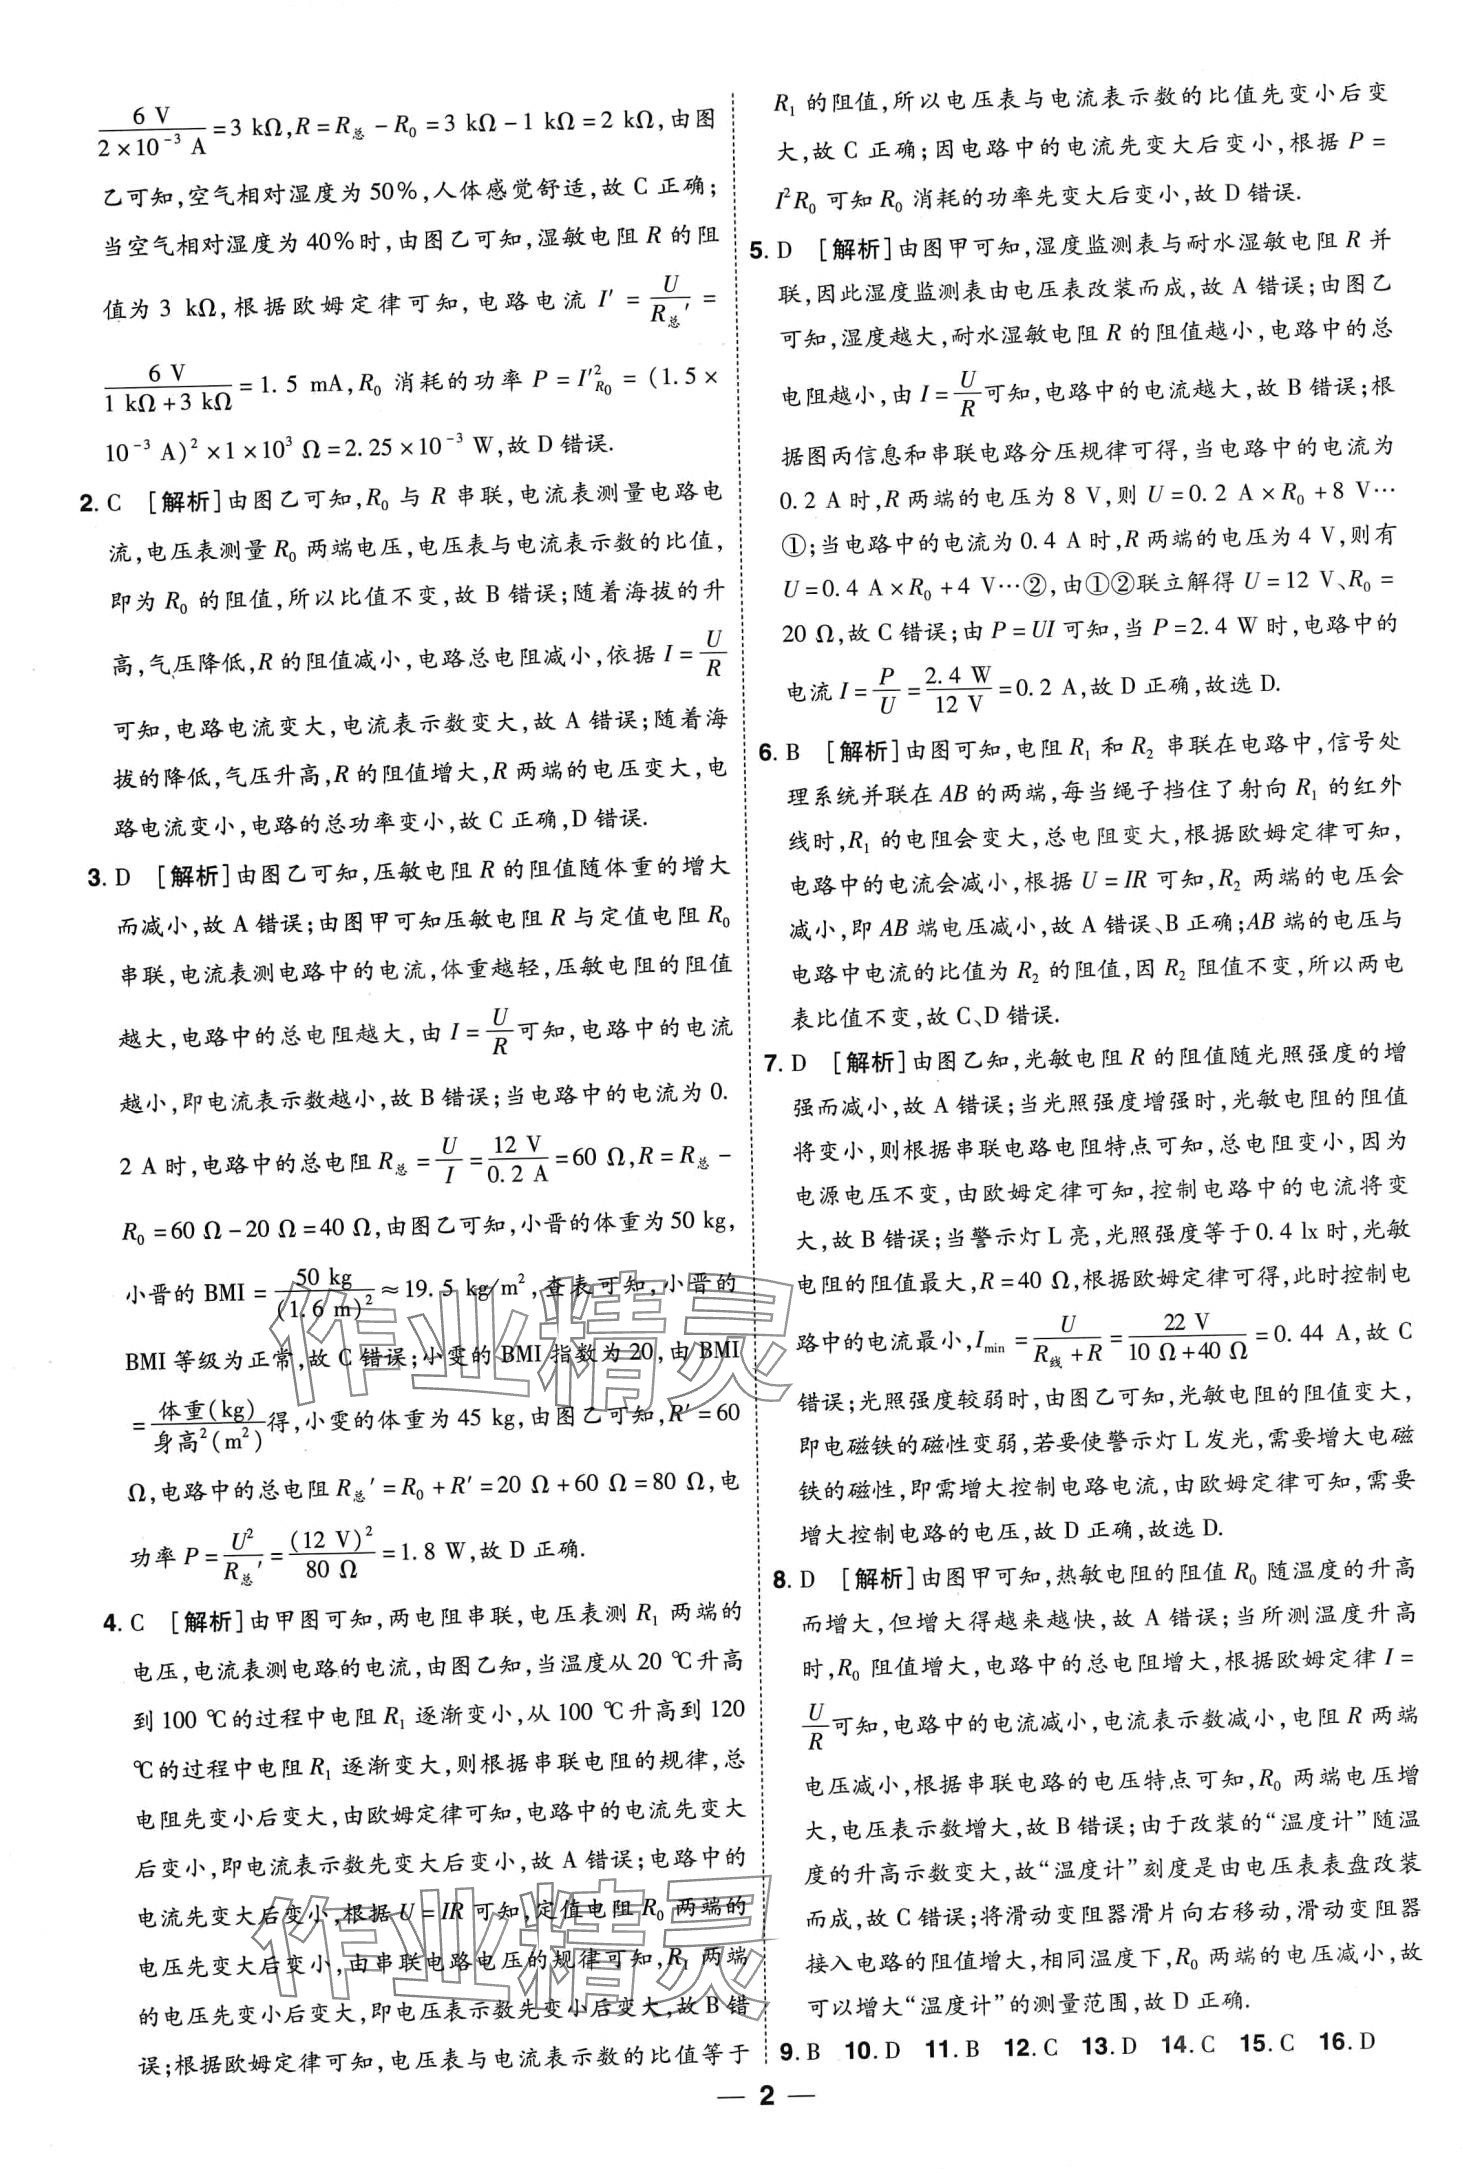 6 V/(2×10⁻³ A)=3 kΩ,R=R总-R₀=3 kΩ-1 kΩ=2 kΩ,由图
乙可知,空气相对湿度为50%,人体感觉舒适,故 C 正确;
当空气相对湿度为40%时,由图乙可知,湿敏电阻 R 的阻
值为 3 kΩ,根据欧姆定律可知,电路电流 I′=U/R总′=
6 V/(1 kΩ+3 kΩ)=1.5 mA,R₀ 消耗的功率 P=I′²R₀=(1.5×
10⁻³ A)²×1×10³ Ω=2.25×10⁻³ W,故 D 错误.
2. C [解析]由图乙可知,R₀ 与 R 串联,电流表测量电路电
流,电压表测量 R₀ 两端电压,电压表与电流表示数的比值,
即为 R₀ 的阻值,所以比值不变,故 B 错误;随着海拔的升
高,气压降低,R 的阻值减小,电路总电阻减小,依据 I=U/R
可知,电路电流变大,电流表示数变大,故 A 错误;随着海
拔的降低,气压升高,R 的阻值增大,R 两端的电压变大,电
路电流变小,电路的总功率变小,故 C 正确,D 错误.
3. D [解析]由图乙可知,压敏电阻 R 的阻值随体重的增大
而减小,故 A 错误;由图甲可知压敏电阻 R 与定值电阻 R₀
串联,电流表测电路中的电流,体重越轻,压敏电阻的阻值
越大,电路中的总电阻越大,由 I=U/R可知,电路中的电流
越小,即电流表示数越小,故 B 错误;当电路中的电流为 0.
2 A 时,电路中的总电阻 R总=U/I=12 V/0.2 A=60 Ω,R=R总-
R₀=60 Ω-20 Ω=40 Ω,由图乙可知,小晋的体重为 50 kg,
小晋的 BMI=50 kg/(1.6 m)²≈19.5 kg/m²,查表可知,小晋的
BMI 等级为正常,故 C 错误;小雯的 BMI 指数为 20,由 BMI
=体重(kg)/身高²(m²)得,小雯的体重为 45 kg,由图乙可知,R′=60
Ω,电路中的总电阻 R总′=R₀+R′=20 Ω+60 Ω=80 Ω,电
功率 P=U²/R总′=(12 V)²/80 Ω=1.8 W,故 D 正确.
4. C [解析]由甲图可知,两电阻串联,电压表测 R₁ 两端的
电压,电流表测电路的电流,由图乙知,当温度从 20 ℃升高
到 100 ℃的过程中电阻 R₁ 逐渐变小,从 100 ℃升高到 120
℃的过程中电阻 R₁ 逐渐变大,则根据串联电阻的规律,总
电阻先变小后变大,由欧姆定律可知,电路中的电流先变大
后变小,即电流表示数先变大后变小,故 A 错误;电路中的
电流先变大后变小,根据 U=IR 可知,定值电阻 R₀ 两端的
电压先变大后变小,由串联电路电压的规律可知,R₁ 两端
的电压先变小后变大,即电压表示数先变小后变大,故 B 错
误;根据欧姆定律可知,电压表与电流表示数的比值等于
R₁ 的阻值,所以电压表与电流表示数的比值先变小后变
大,故 C 正确;因电路中的电流先变大后变小,根据 P=
I²R₀ 可知 R₀ 消耗的功率先变大后变小,故 D 错误.
5. D [解析]由图甲可知,湿度监测表与耐水湿敏电阻 R 并
联,因此湿度监测表由电压表改装而成,故 A 错误;由图乙
可知,湿度越大,耐水湿敏电阻 R 的阻值越小,电路中的总
电阻越小,由 I=U/R可知,电路中的电流越大,故 B 错误;根
据图丙信息和串联电路分压规律可得,当电路中的电流为
0.2 A 时,R 两端的电压为 8 V,则 U=0.2 A×R₀+8 V…
①;当电路中的电流为 0.4 A 时,R 两端的电压为 4 V,则有
U=0.4 A×R₀+4 V…②,由①②联立解得 U=12 V、R₀=
20 Ω,故 C 错误;由 P=UI 可知,当 P=2.4 W 时,电路中的
电流 I=P/U=2.4 W/12 V=0.2 A,故 D 正确,故选 D.
6. B [解析]由图可知,电阻 R₁ 和 R₂ 串联在电路中,信号处
理系统并联在 AB 的两端,每当绳子挡住了射向 R₁ 的红外
线时,R₁ 的电阻会变大,总电阻变大,根据欧姆定律可知,
电路中的电流会减小,根据 U=IR 可知,R₂ 两端的电压会
减小,即 AB 端电压减小,故 A 错误、B 正确;AB 端的电压与
电路中电流的比值为 R₂ 的阻值,因 R₂ 阻值不变,所以两电
表比值不变,故 C、D 错误.
7. D [解析]由图乙知,光敏电阻 R 的阻值随光照强度的增
强而减小,故 A 错误;当光照强度增强时,光敏电阻的阻值
将变小,则根据串联电路电阻特点可知,总电阻变小,因为
电源电压不变,由欧姆定律可知,控制电路中的电流将变
大,故 B 错误;当警示灯 L 亮,光照强度等于 0.4 lx 时,光敏
电阻的阻值最大,R=40 Ω,根据欧姆定律可得,此时控制电
路中的电流最小,Imin=U/(R线+R)=22 V/(10 Ω+40 Ω)=0.44 A,故 C
错误;光照强度较弱时,由图乙可知,光敏电阻的阻值变大,
即电磁铁的磁性变弱,若要使警示灯 L 发光,需要增大电磁
铁的磁性,即需增大控制电路电流,由欧姆定律可知,需要
增大控制电路的电压,故 D 正确,故选 D.
8. D [解析]由图甲可知,热敏电阻的阻值 R₀ 随温度的升高
而增大,但增大得越来越快,故 A 错误;当所测温度升高
时,R₀ 阻值增大,电路中的总电阻增大,根据欧姆定律 I=
U/R可知,电路中的电流减小,电流表示数减小,电阻 R 两端
电压减小,根据串联电路的电压特点可知,R₀ 两端电压增
大,电压表示数增大,故 B 错误;由于改装的“温度计”随温
度的升高示数变大,故“温度计”刻度是由电压表表盘改装
而成,故 C 错误;将滑动变阻器滑片向右移动,滑动变阻器
接入电路的阻值增大,相同温度下,R₀ 两端的电压减小,故
可以增大“温度计”的测量范围,故 D 正确.
9. B 10. D 11. B 12. C 13. D 14. C 15. C 16. D
— 2 —
作业精灵
作业精灵